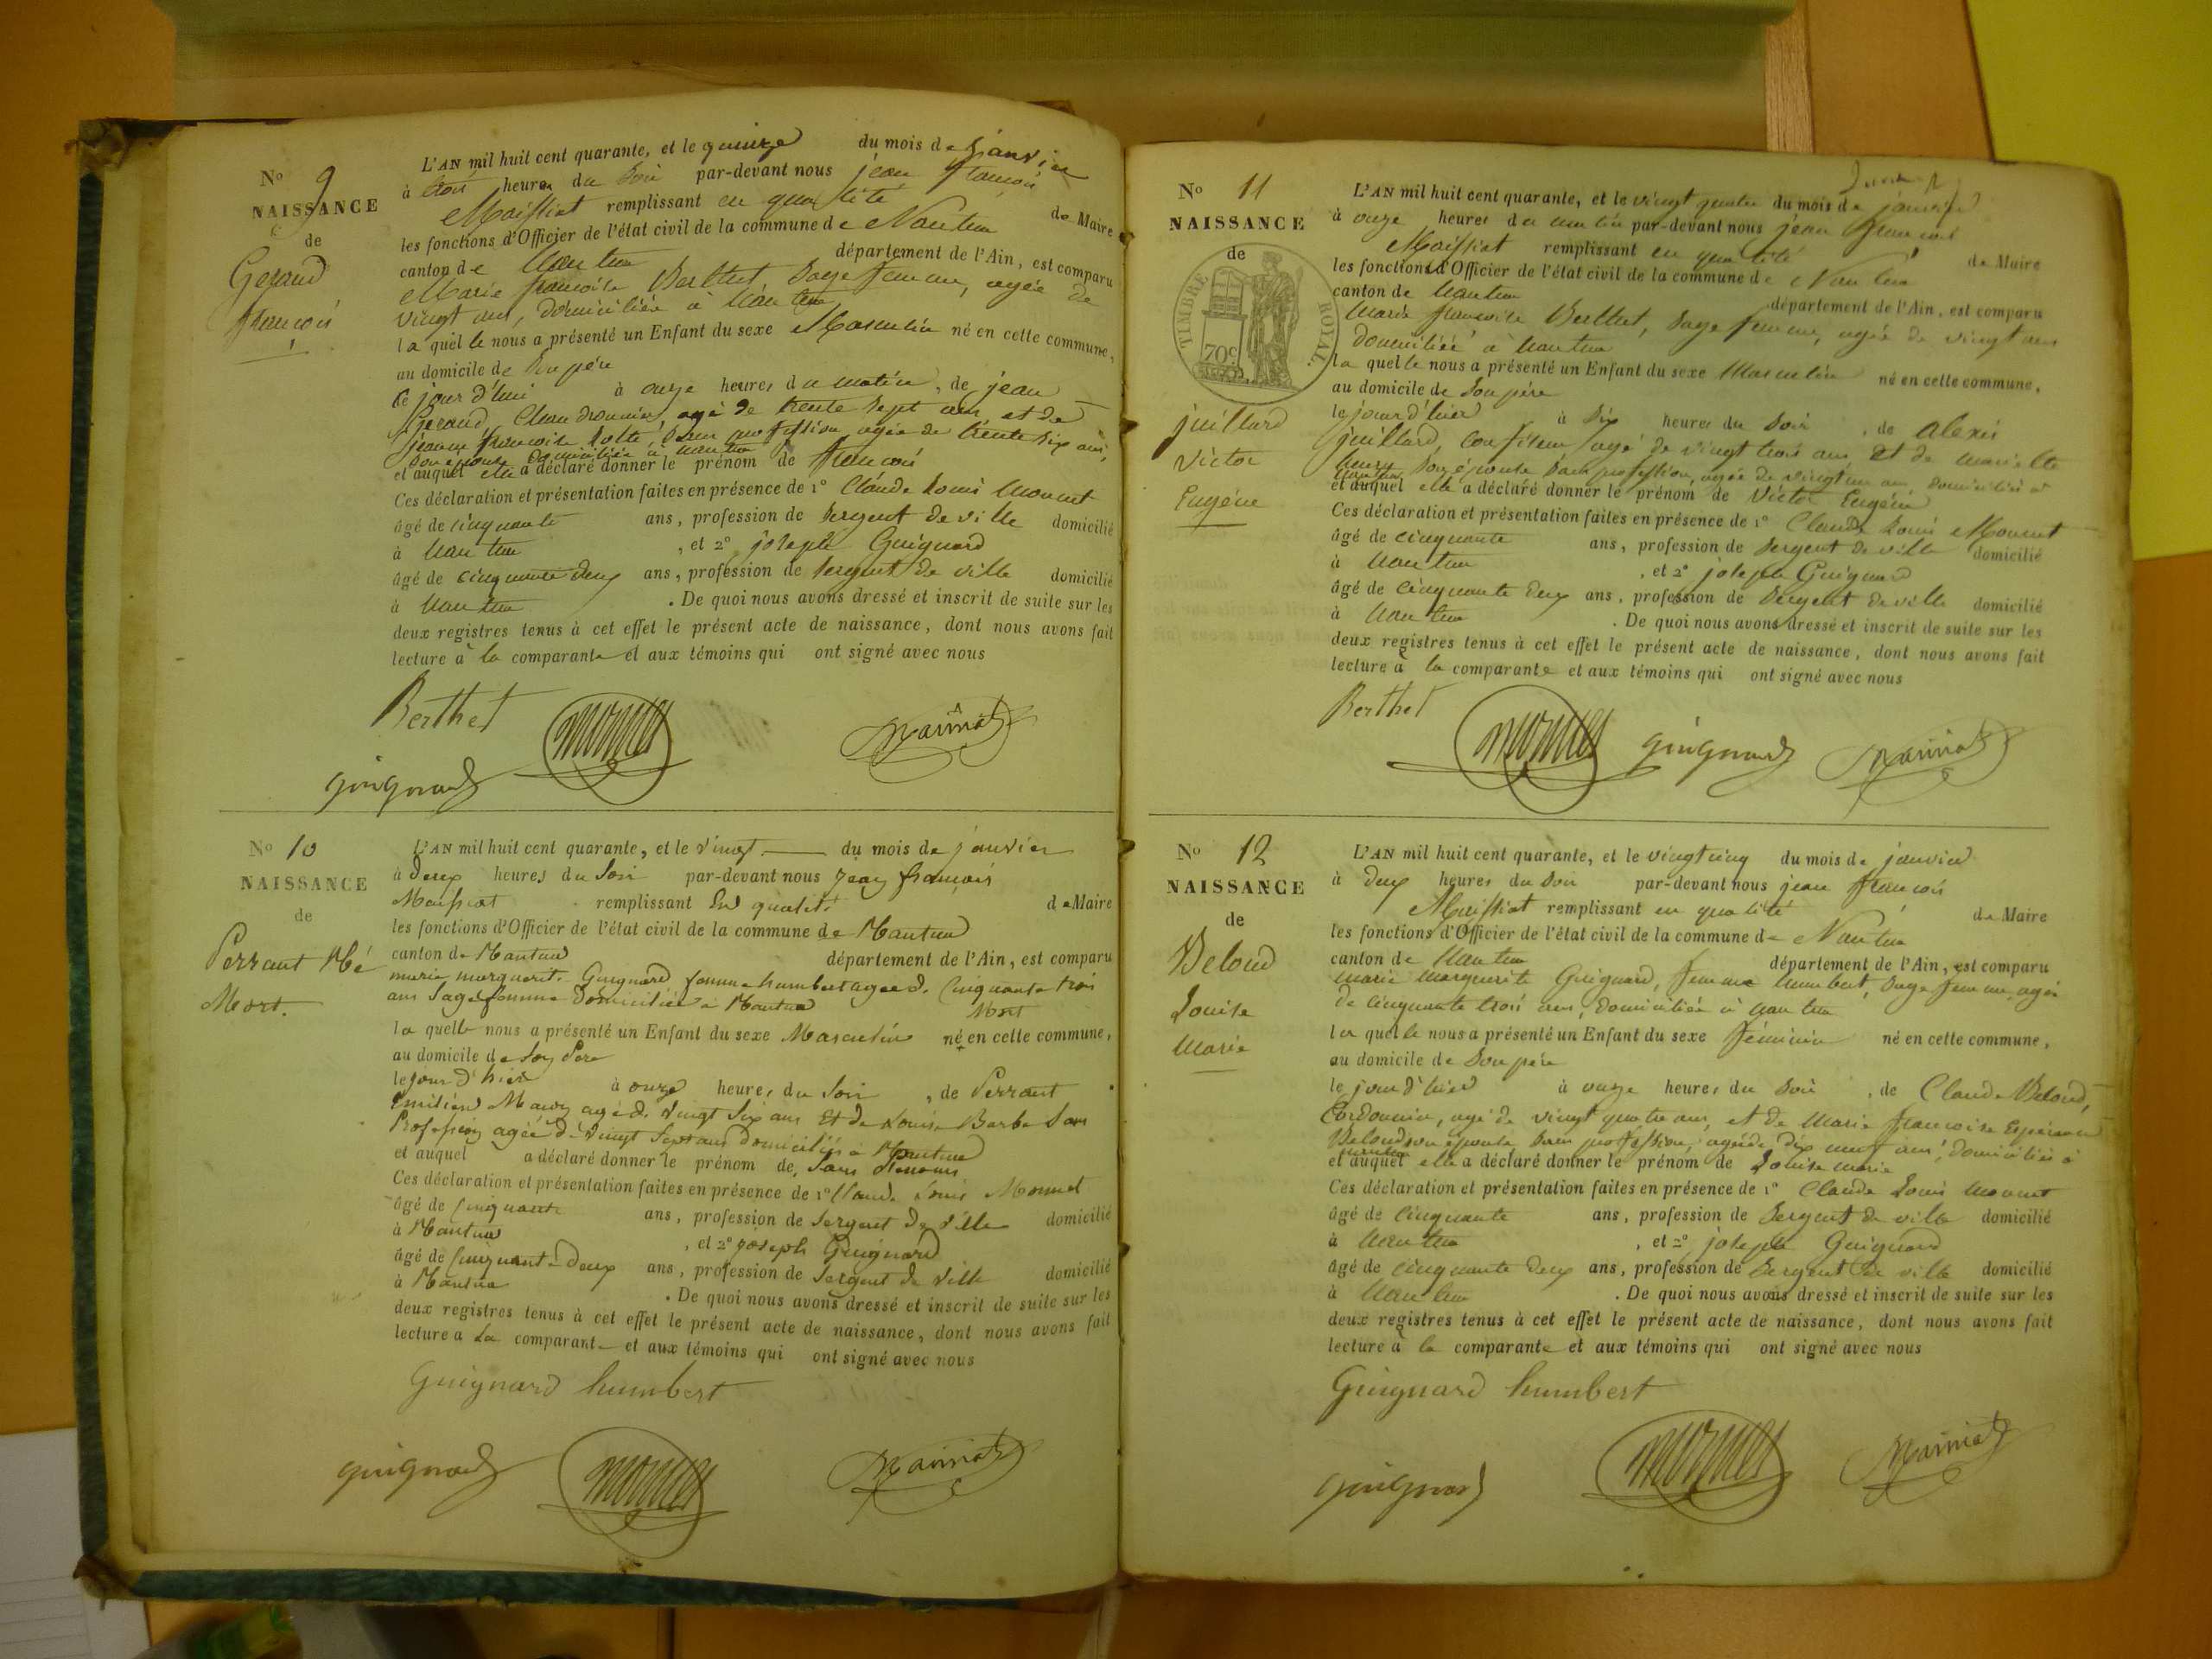 No 9
NAISSANCE
de
Geraud
françois
L'AN mil huit cent quarante, et le quinze du mois de janvier
à trois heures du soir par-devant nous jean françois
Maissiat remplissant en qualité de Maire
les fonctions d'Officier de l'état civil de la commune de Nantua
canton de Nantua département de l'Ain, est comparu
Marie françoise Berthet Sage femme, agée de
vingt ans, domiciliée à Nantua
la quelle nous a présenté un Enfant du sexe Masculin né en cette commune,
au domicile de Son père
ce jour d'hui à onze heures du matin, de jean
Geraud, Chaudronnier, agé de trente sept ans, et de
jeanne françoise sans profession agée de trente six ans,
son épouse domiciliés à nantua
et auquel elle a déclaré donner le prénom de françois
Ces déclaration et présentation faites en présence de 1° Claude Louis Monnet
âgé de cinquante ans, profession de Sergent de ville domicilié
à Nantua, et 2° joseph Guignard
âgé de cinquante deux ans, profession de Sergent de ville domicilié
à Nantua. De quoi nous avons dressé et inscrit de suite sur les
deux registres tenus à cet effet le présent acte de naissance, dont nous avons fait
lecture à la comparante et aux témoins qui ont signé avec nous
Berthet monnet Maissiat
guignard
No 10
NAISSANCE
de
Perraut Né
Mort.
L'AN mil huit cent quarante, et le vingt du mois de janvier
à deux heures du Soir par-devant nous jean françois
Maissiat remplissant en qualité de Maire
les fonctions d'Officier de l'état civil de la commune de Nantua
canton de Nantua département de l'Ain, est comparu
marie marguerite Guignard femme humbert agée de Cinquante trois
ans Sage femme domiciliée à Nantua
Mort
la quelle nous a présenté un Enfant du sexe Masculin né en cette commune,
au domicile de Son Père
le jour d'hier à onze heures du Soir, de Perraut
agé de vingt six ans Et de Louise Barbe Sans
Profession agée de vingt Sept ans domiciliés à Nantua
et auquel a déclaré donner le prénom de Sans Prenoms
Ces déclaration et présentation faites en présence de 1° Claude Louis Monnet
âgé de Cinquante ans, profession de Sergent de Ville domicilié
à Nantua, et 2° joseph Guignard
âgé de Cinquante deux ans, profession de Sergent de Ville domicilié
à Nantua. De quoi nous avons dressé et inscrit de suite sur les
deux registres tenus à cet effet le présent acte de naissance, dont nous avons fait
lecture a La comparante et aux témoins qui ont signé avec nous
Guignard humbert
guignard monnet Maissiat
No 11
NAISSANCE
de
TIMBRE ROYAL.
70c
juillard
Victor
Eugéne
L'AN mil huit cent quarante, et le vingt quatre du mois de janvier
à onze heures du matin par-devant nous jean françois
Maissiat remplissant en qualité de Maire
les fonctions d'Officier de l'état civil de la commune de Nantua
canton de Nantua département de l'Ain, est comparu
Marie françoise Berthet, Sage femme, agée de vingt ans
domiciliée à Nantua
la quelle nous a présenté un Enfant du sexe Masculin né en cette commune,
au domicile de Son père
le jour d'hier à Six heures du Soir, de alexis
juillard, Confiseur, agé de vingt trois ans Et de
Son épouse Sans profession, agée de vingt un ans, domiciliés à
nantua
et auquel elle a déclaré donner le prénom de Victor Eugéne
Ces déclaration et présentation faites en présence de 1° Claude Louis Monnet
âgé de cinquante ans, profession de Sergent de ville domicilié
à Nantua, et 2° joseph Guignard
âgé de cinquante deux ans, profession de Sergent de ville domicilié
à Nantua. De quoi nous avons dressé et inscrit de suite sur les
deux registres tenus à cet effet le présent acte de naissance, dont nous avons fait
lecture à la comparante et aux témoins qui ont signé avec nous
Berthet monnet guignard Maissiat
No 12
NAISSANCE
de
Beloud
Louise
Marie
L'AN mil huit cent quarante, et le vingt cinq du mois de janvier
à deux heures du Soir par-devant nous jean françois
Maissiat remplissant en qualité de Maire
les fonctions d'Officier de l'état civil de la commune de Nantua
canton de Nantua département de l'Ain, est comparu
Marie Marguerite Guignard, femme humbert, Sage femme, agée
de cinquante trois ans, domiciliée à Nantua
la quelle nous a présenté un Enfant du sexe féminin né en cette commune,
au domicile de Son père
le jour d'hier à onze heures du Soir, de Claude Beloud,
Cordonnier, agé de vingt quatre ans, et de Marie françoise
Beloud son épouse Sans profession, agée de dix neuf ans, domiciliés à
nantua
et auquel elle a déclaré donner le prénom de Louise Marie
Ces déclaration et présentation faites en présence de 1° Claude Louis Monnet
âgé de cinquante ans, profession de Sergent de ville domicilié
à Nantua, et 2° joseph Guignard
âgé de cinquante deux ans, profession de Sergent de ville domicilié
à Nantua. De quoi nous avons dressé et inscrit de suite sur les
deux registres tenus à cet effet le présent acte de naissance, dont nous avons fait
lecture à la comparante et aux témoins qui ont signé avec nous
Guignard humbert
guignard monnet Maissiat